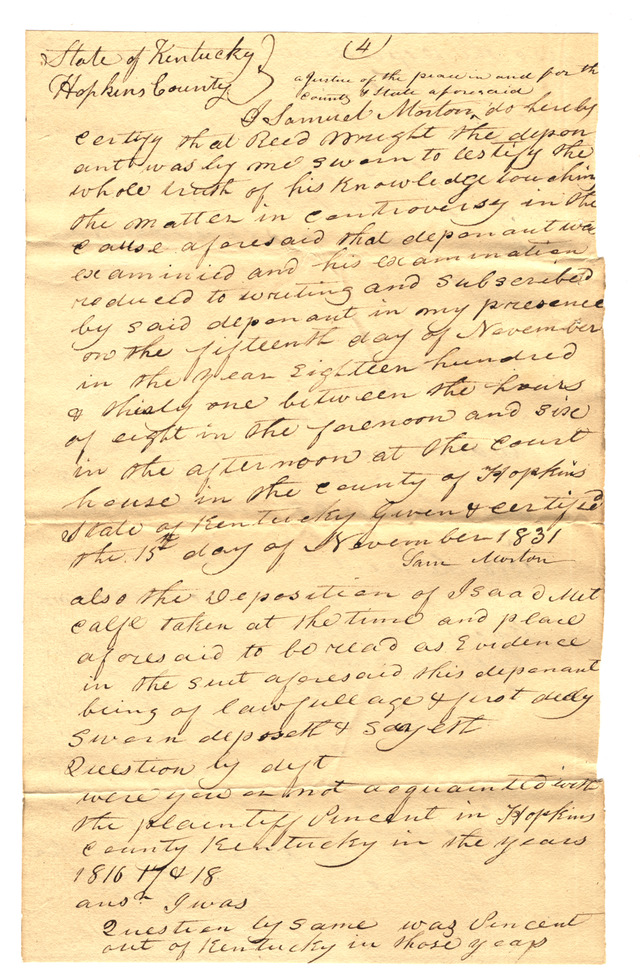 State of Kentucky } (4)
Hopkins County
a Justice of the peace in and for the
County & State aforesaid
I Samuel Morton do hereby
certify that Reed Wright the depon
ant was by me sworn to testify the
whole truth of his Knowledge touching
the matter in controversy in the
cause aforesaid that deponant was
examinied and his examination
reduced to writing and subscribed
by said deponant in my presence
on the fifteenth day of November
in the year Eighteen hundred
& thirty one between the hours
of eight in the forenoon and six
in the afternoon at the court
house in the county of Hopkins
State of Kentucky Given & certified
the 15th day of November 1831
Sam Morton
also the Deposition of Isaad Met
calfe taken at the time and place
aforesaid to be read as Evidence
in the suit aforesaid this deponant
being of lawfull age & first duly
sworn deposeth & sayeth
Question by deft
were you or not acquainted with
the plaintiff Vincent in Hopkins
County Kentucky in the years
1816 17 & 18
ansr I was
Question by same was Vincent
out of Kentucky in those years